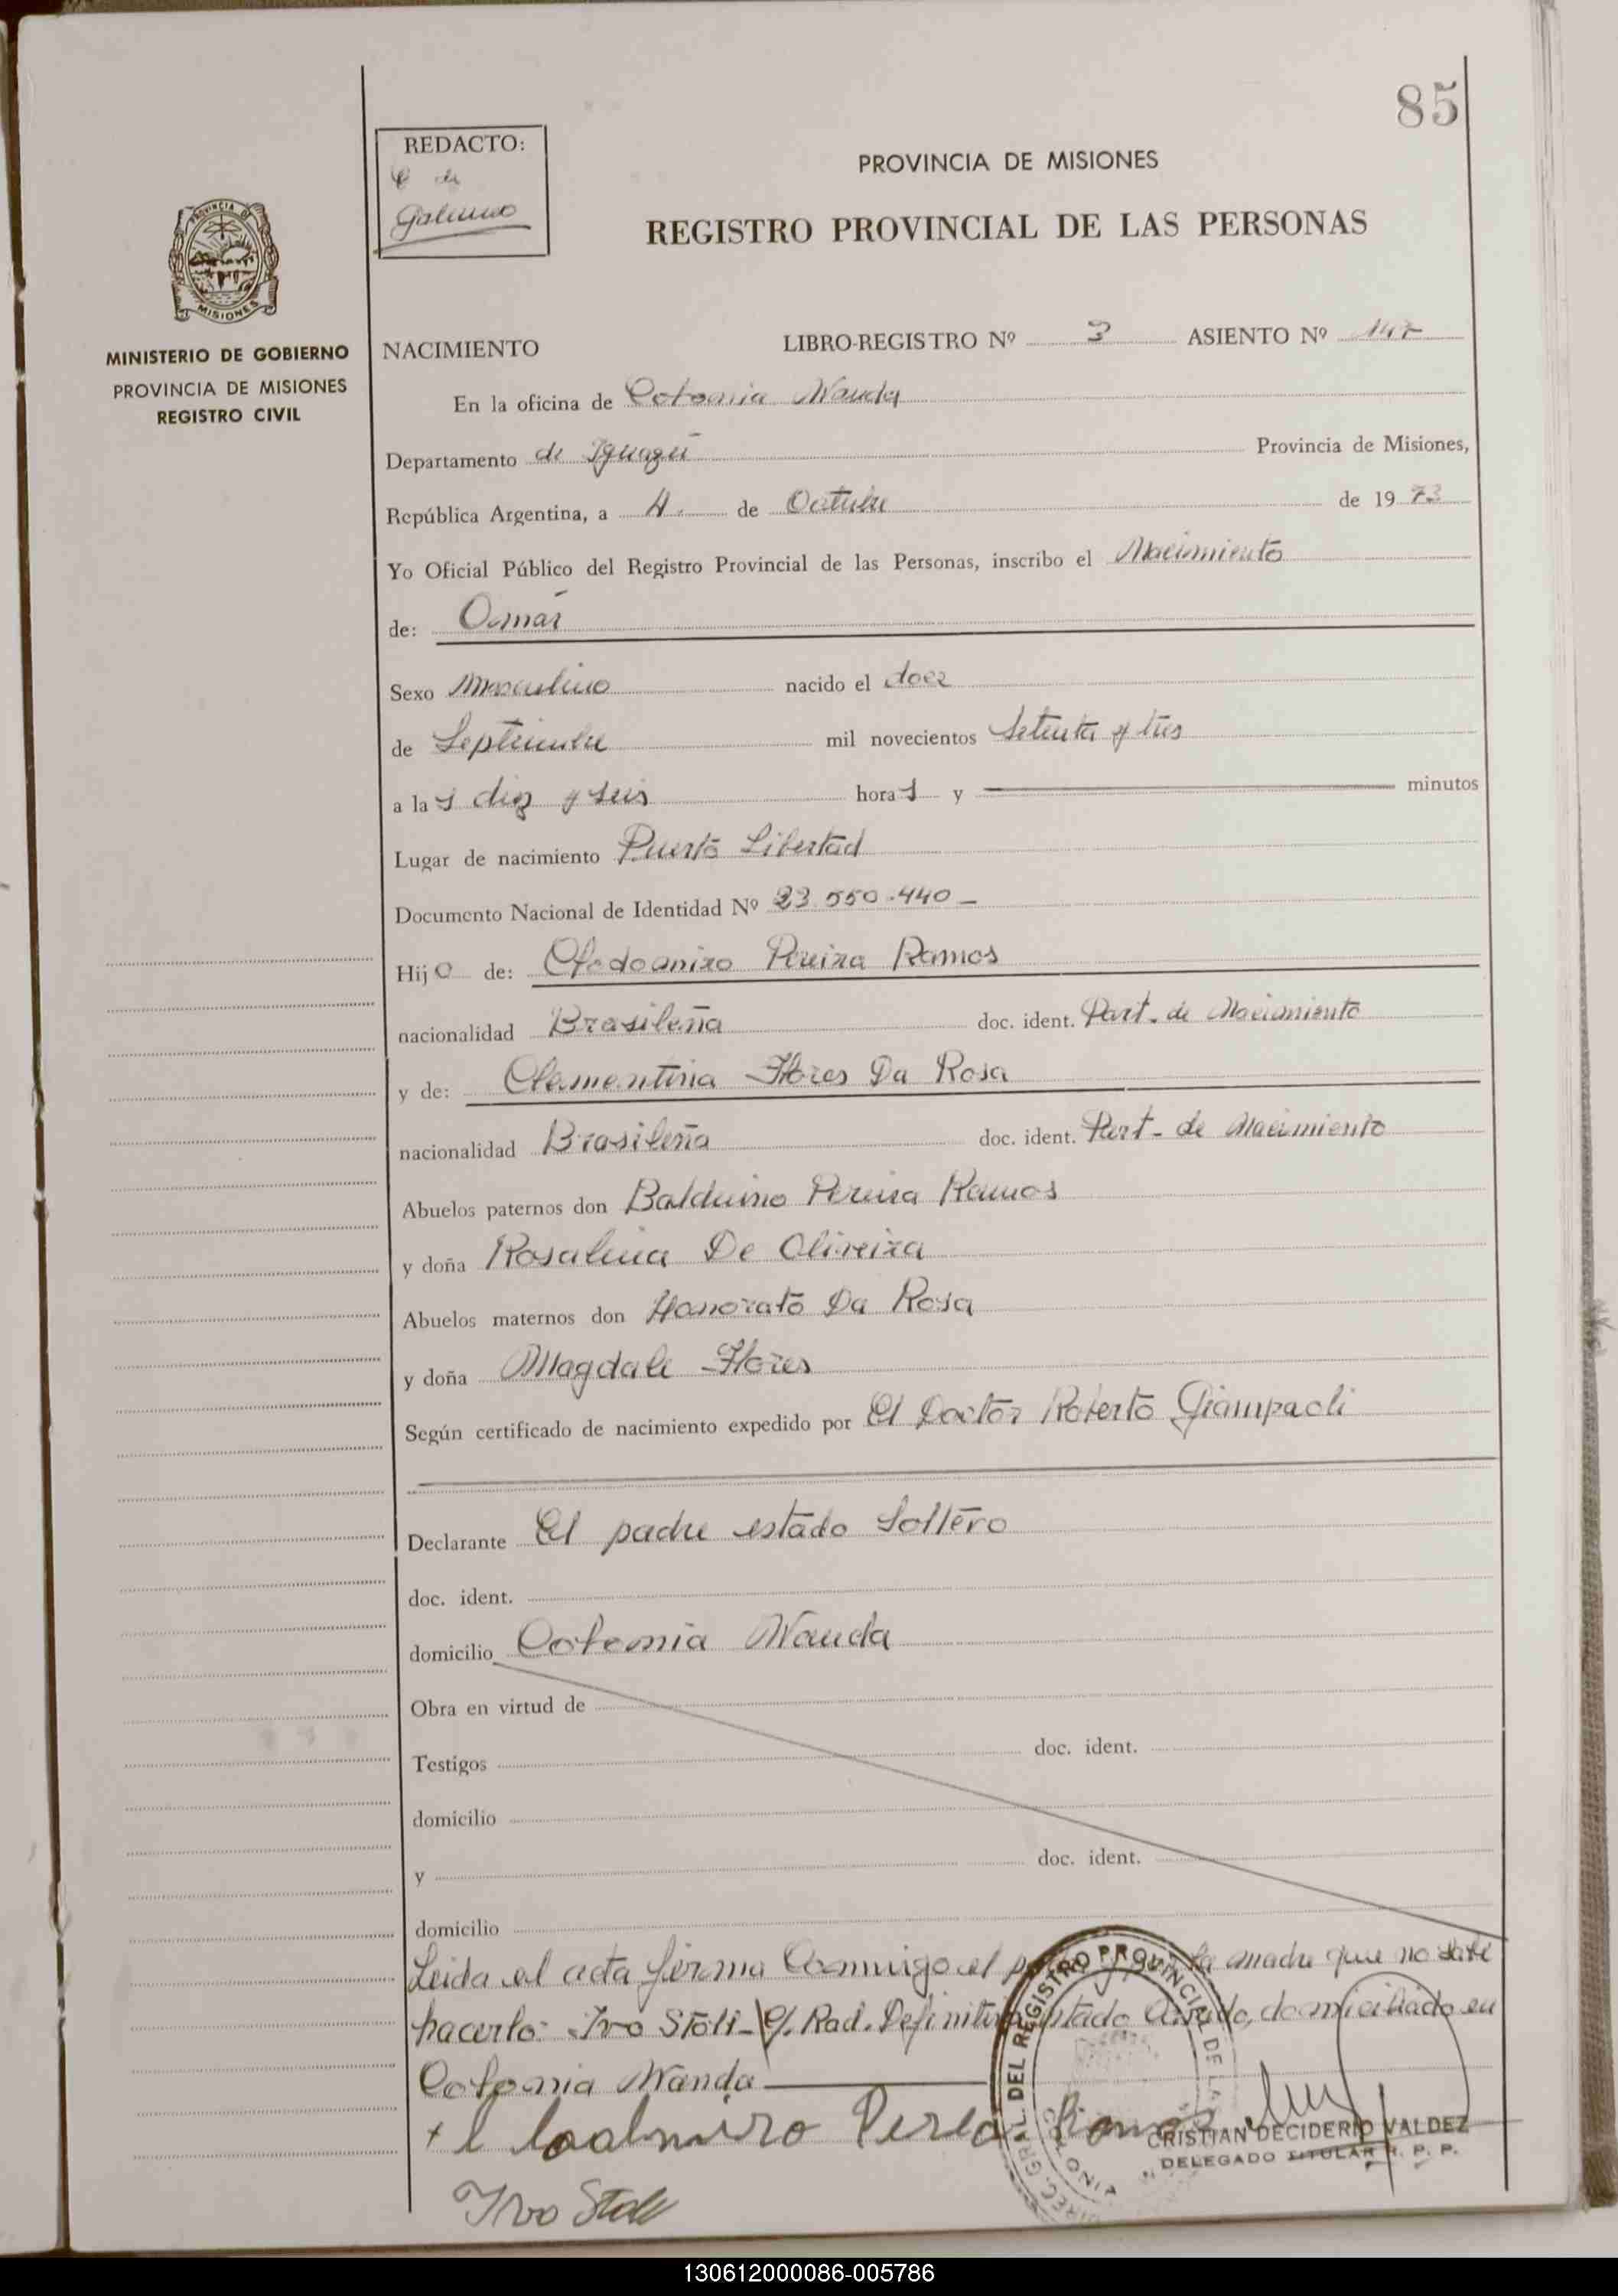 85
REDACTO:
C de
Galeano
PROVINCIA DE MISIONES
REGISTRO PROVINCIAL DE LAS PERSONAS
PROVINCIA DE
MISIONES
MINISTERIO DE GOBIERNO
PROVINCIA DE MISIONES
REGISTRO CIVIL
NACIMIENTO LIBRO-REGISTRO Nº 3 ASIENTO Nº 147
En la oficina de Colonia Wanda
Departamento de Iguazú Provincia de Misiones,
República Argentina, a 4. de Octubre de 1973
Yo Oficial Público del Registro Provincial de las Personas, inscribo el Nacimiento
de: Osmar
Sexo Masculino nacido el doce
de Septiembre mil novecientos Setenta y tres
a las diez y seis horas y minutos
Lugar de nacimiento Puerto Libertad
Documento Nacional de Identidad Nº 23.550.440 -
Hijo de: Clodoomiro Pereira Ramos
nacionalidad Brasileña doc. ident. Part. de Nacimiento
y de: Clementina Flores Da Rosa
nacionalidad Brasileña doc. ident. Part - de Nacimiento
Abuelos paternos don Balduino Pereira Ramos
y doña Rosalina De Oliveira
Abuelos maternos don Honorato Da Rosa
y doña Magdale Flores
Según certificado de nacimiento expedido por El Doctor Roberto Giampaoli
Declarante El padre estado Soltero
doc. ident.
domicilio Colonia Wanda
Obra en virtud de
Testigos doc. ident.
domicilio
y doc. ident.
domicilio
Leida el acta firma Conmigo el la madre que no sabe
hacerlo Ivo Stoll - C/. Rad. Definitiva estado Casado, domiciliado en
Colonia Wanda
Perea Ramos
CRISTIAN DECIDERIO VALDEZ
DELEGADO TITULAR R. P. P.
Ivo Stoll
DIREC. GRAL. DEL REGISTRO PROVINCIAL DE LA
130612000086-005786